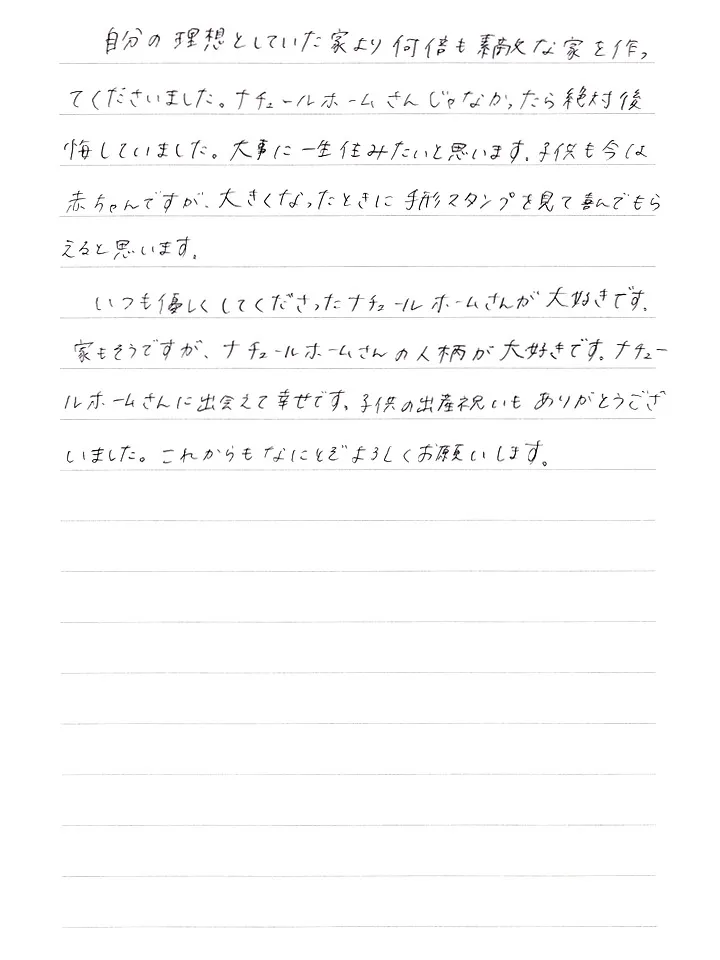 自分の理想としていた家より何倍も素敵な家を作っ
てくださいました。ナチュールホームさんじゃなかったら絶対後
悔していました。大事に一生住みたいと思います。子供も今は
赤ちゃんですが、大きくなったときに手形スタンプを見て喜んでもら
えると思います。
いつも優しくしてくださったナチュールホームさんが大好きです。
家もそうですが、ナチュールホームさんの人柄が大好きです。ナチュー
ルホームさんに出会えて幸せです。子供の出産祝いもありがとうござ
いました。これからもなにとぞよろしくお願いします。